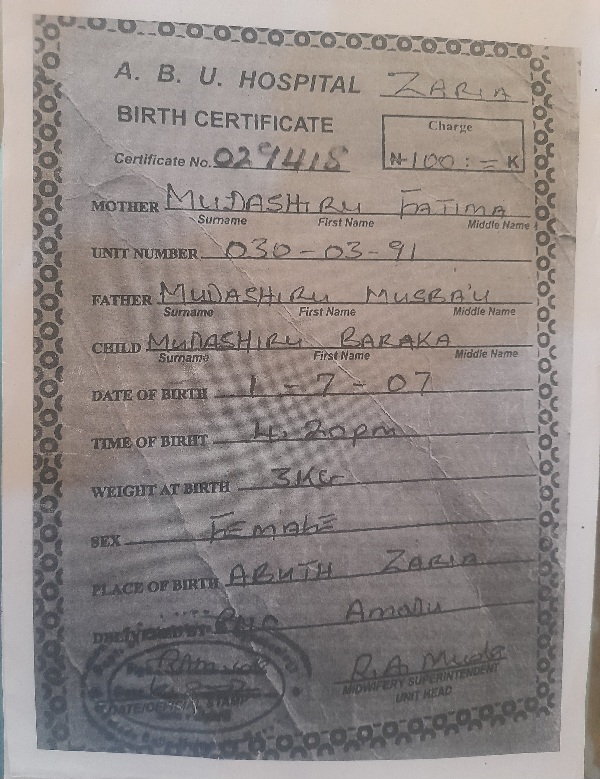 A. B. U. HOSPITAL ZARIA
BIRTH CERTIFICATE
Charge
Certificate No. 029418
N-100 : = K
MOTHER MUDASHIRU FATIMA
Surname First Name Middle Name
UNIT NUMBER 030-03-91
FATHER MUDASHIRU MUSBA'U
Surname First Name Middle Name
CHILD MUDASHIRU BARAKA
Surname First Name Middle Name
DATE OF BIRTH 1 - 7 - 07
TIME OF BIRHT 4.20pm
WEIGHT AT BIRTH 3KG
SEX FEMALE
PLACE OF BIRTH ABUTH ZARIA
Amadu
R.A. Muda
MIDWIFERY SUPERINTENDENT
UNIT HEAD
DATE/OFFICIAL STAMP